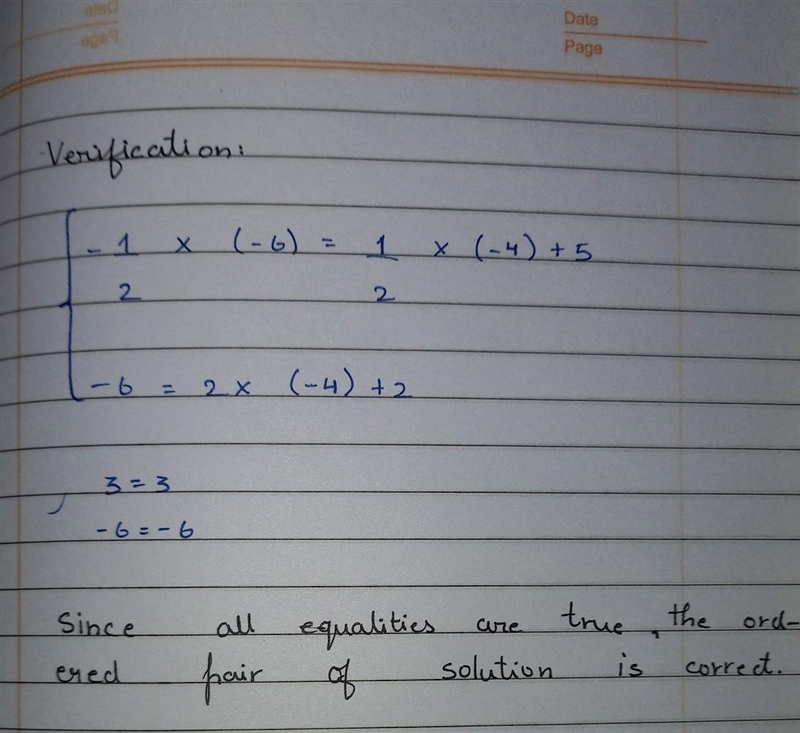 Date
Page
Date
Page
Verification:
- 1/2 × (-6) = 1/2 × (-4) + 5
-6 = 2 × (-4) + 2
3 = 3
-6 = -6
Since all equalities are true, the ord-
ered pair of solution is correct.